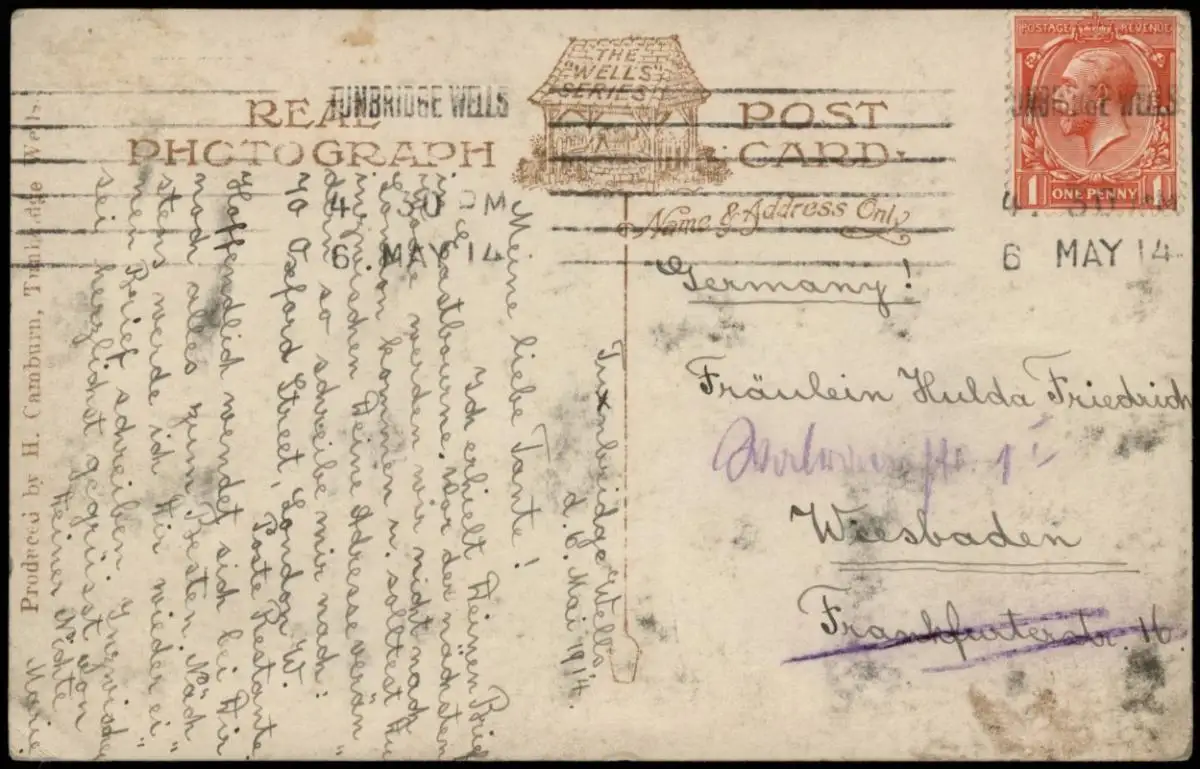 THE
"WELLS"
SERIES
REAL PHOTOGRAPH
POST CARD
Name & Address Only
TUNBRIDGE WELLS
4. 30 PM
6 MAY 14
TUNBRIDGE WELLS
4. 30 PM
6 MAY 14
POSTAGE REVENUE
1 ONE PENNY 1
Germany!
Fräulein Hulda Friedrich
Wiesbaden
Frankfurterstr. 16.
Tuxnbridge Wells,
d. 6. Mai 1914.
Meine liebe Tante!
Ich erhielt Deinen Brief
in Eastbourne. Vor der nächsten
Woche werden wir nicht nach
London kommen u. solltest Du
inzwischen Deine Adresse verän„
dern so schreibe mir nach:
70 Oxford Street, London W.
Poste Restante
Hoffendlich wendet sich bei Dir
noch alles zum Besten. Näch„
stens werde ich Dir wieder ei„
nen Brief schreiben. Inzwischen
sei herzlichst gegrüsst von
Deiner Nichte
Marie.
Produced by H. Camburn, Tunbridge Wells.